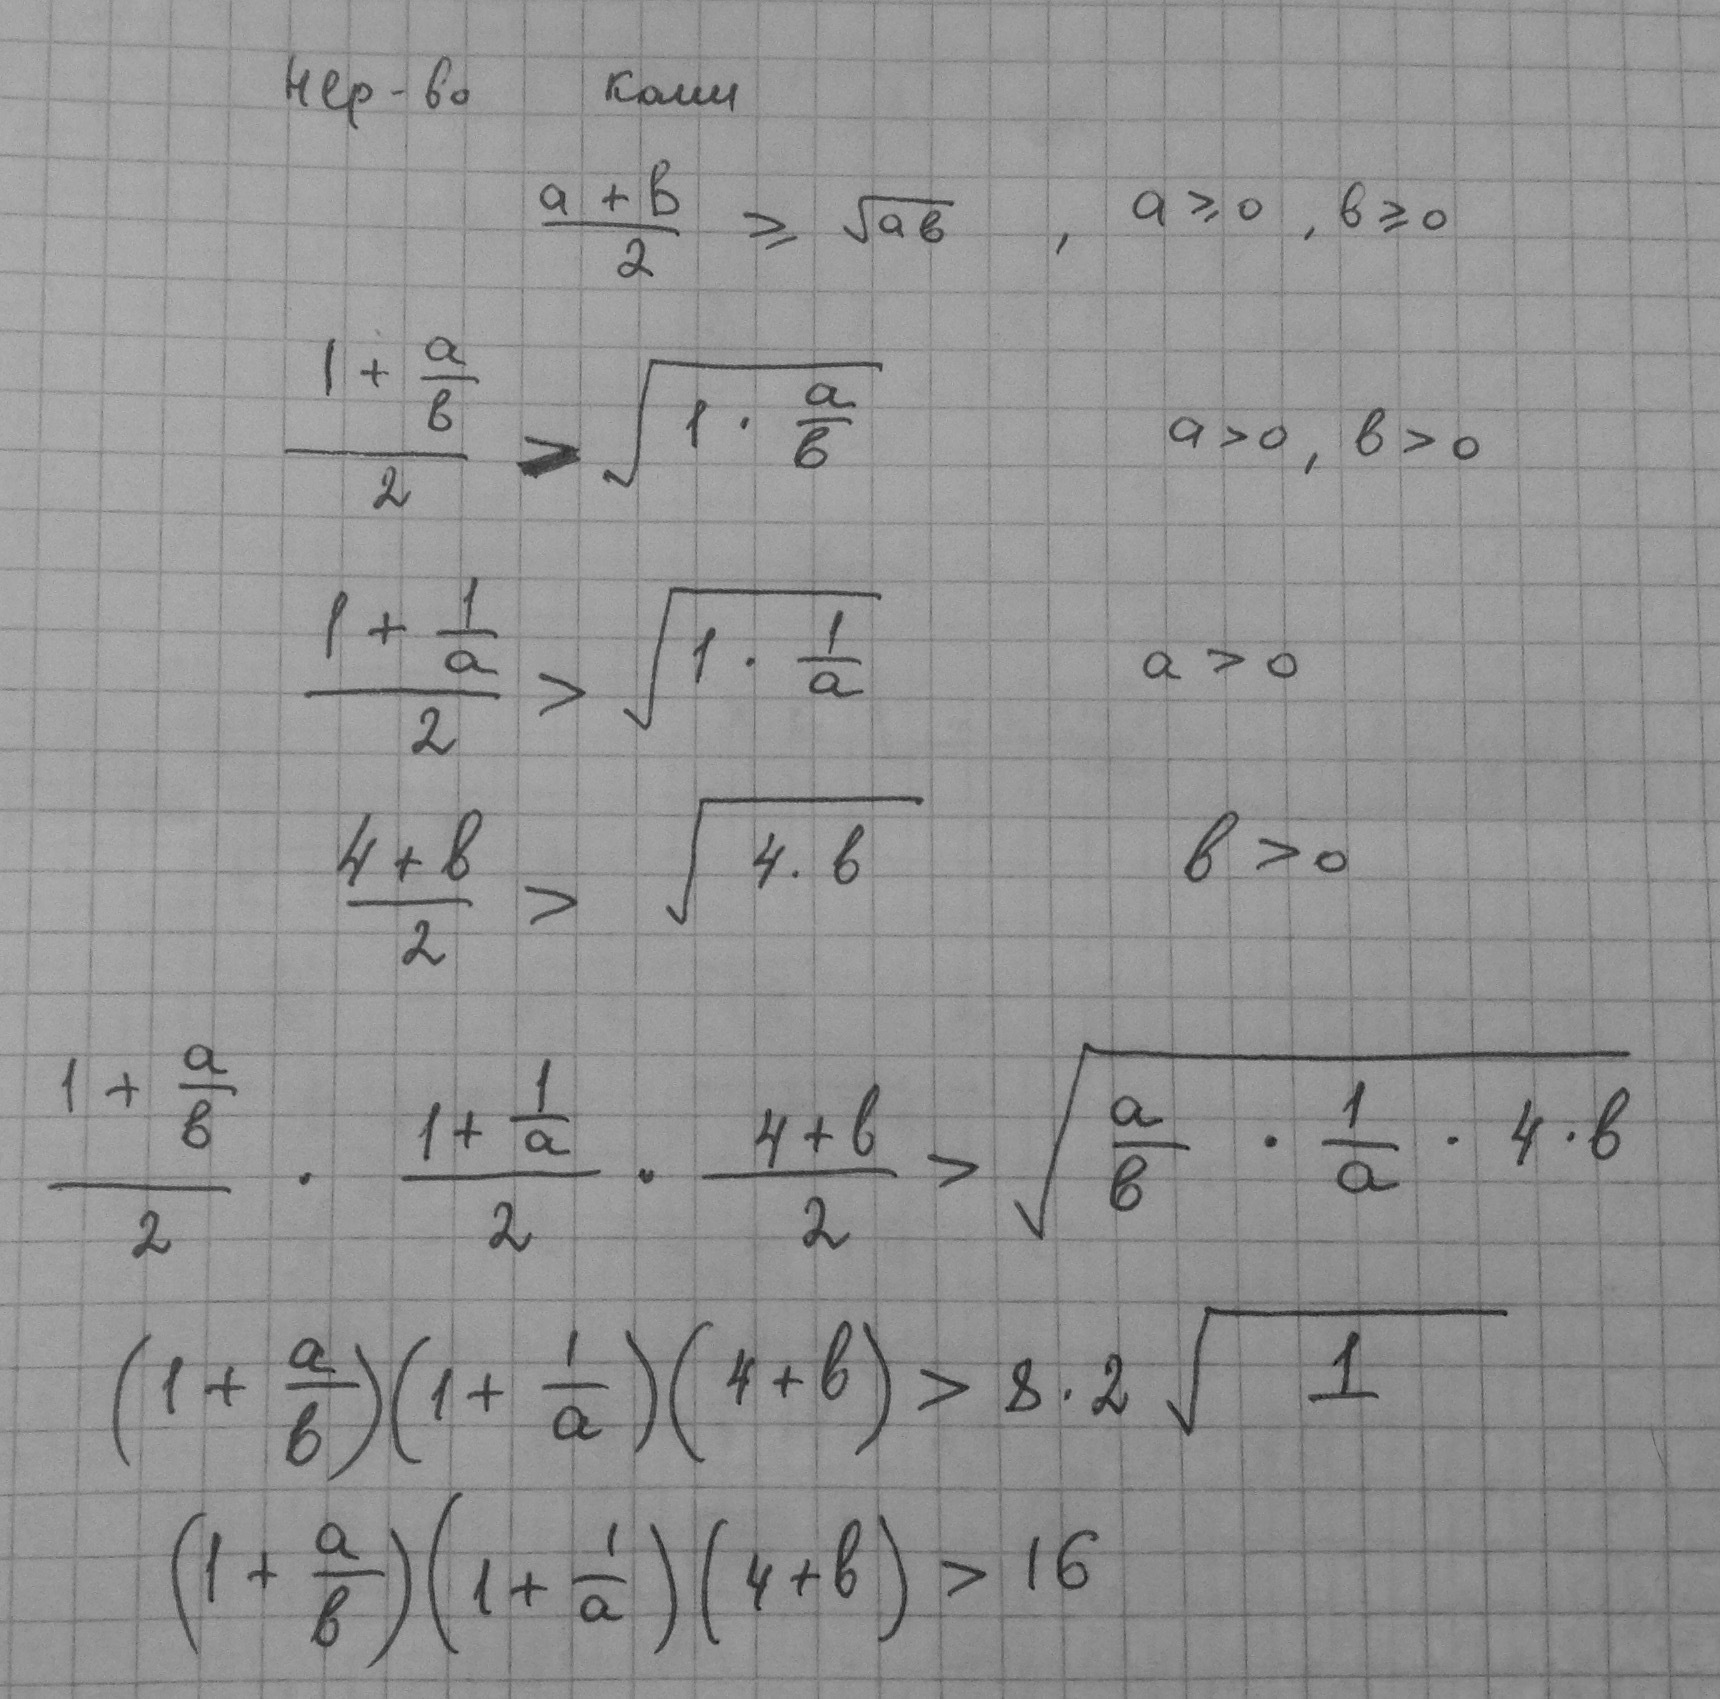 Нер-во Коши
(a + b)/2 ⩾ √(ab) , a ⩾ 0 , b ⩾ 0
(1 + a/b)/2 > √(1 · a/b) a > 0 , b > 0
(1 + 1/a)/2 > √(1 · 1/a) a > 0
(4 + b)/2 > √(4 · b) b > 0
(1 + a/b)/2 · (1 + 1/a)/2 · (4 + b)/2 > √(a/b · 1/a · 4 · b)
(1 + a/b)(1 + 1/a)(4 + b) > 8 · 2 √1
(1 + a/b)(1 + 1/a)(4 + b) > 16